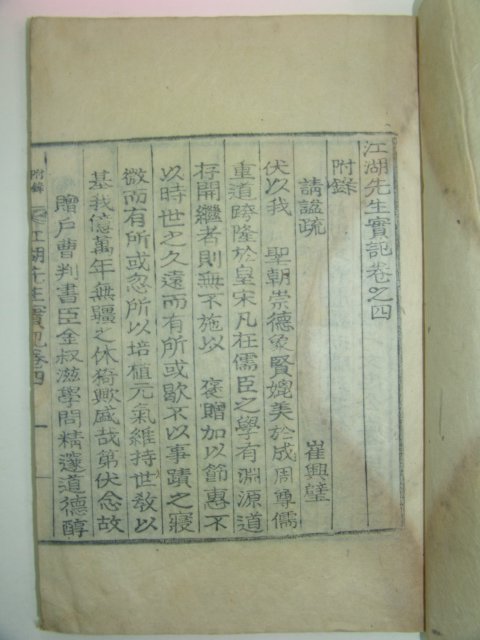 江湖先生實記卷之四
附錄
請謚疏 崔興璧
伏以我 聖朝崇德象賢媲美於成周尊儒
重道跨隆於皇宋凡在儒臣之學有淵源道
存開繼者則無不施以 褒贈加以節惠不
以時世之久遠而有所或歇不以事蹟之寢
微而有所或忽所以培植元氣維持世敎以
基我億萬年無疆之休猗歟盛哉第伏念故
贈戶曹判書臣金叔滋學問精邃道德醇
附錄 江湖先生實記卷四 一